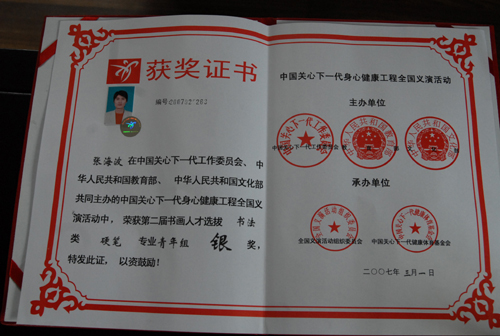 获奖证书
编号
张海波 在中国关心下一代工作委员会、中
华人民共和国教育部、中华人民共和国文化部
共同主办的中国关心下一代身心健康工程全国义
演活动中，荣获第二届书画人才选拔 书法
类 硬笔 专业青年组 银 奖，
特发此证，以资鼓励！
中国关心下一代身心健康工程全国义演活动
主办单位
中国关心下一代工作委员会
中华人民共和国教育部
中华人民共和国文化部
承办单位
全国义演活动组织委员会
中国关心下一代健康体育基金会
二〇〇七年 三月 一日